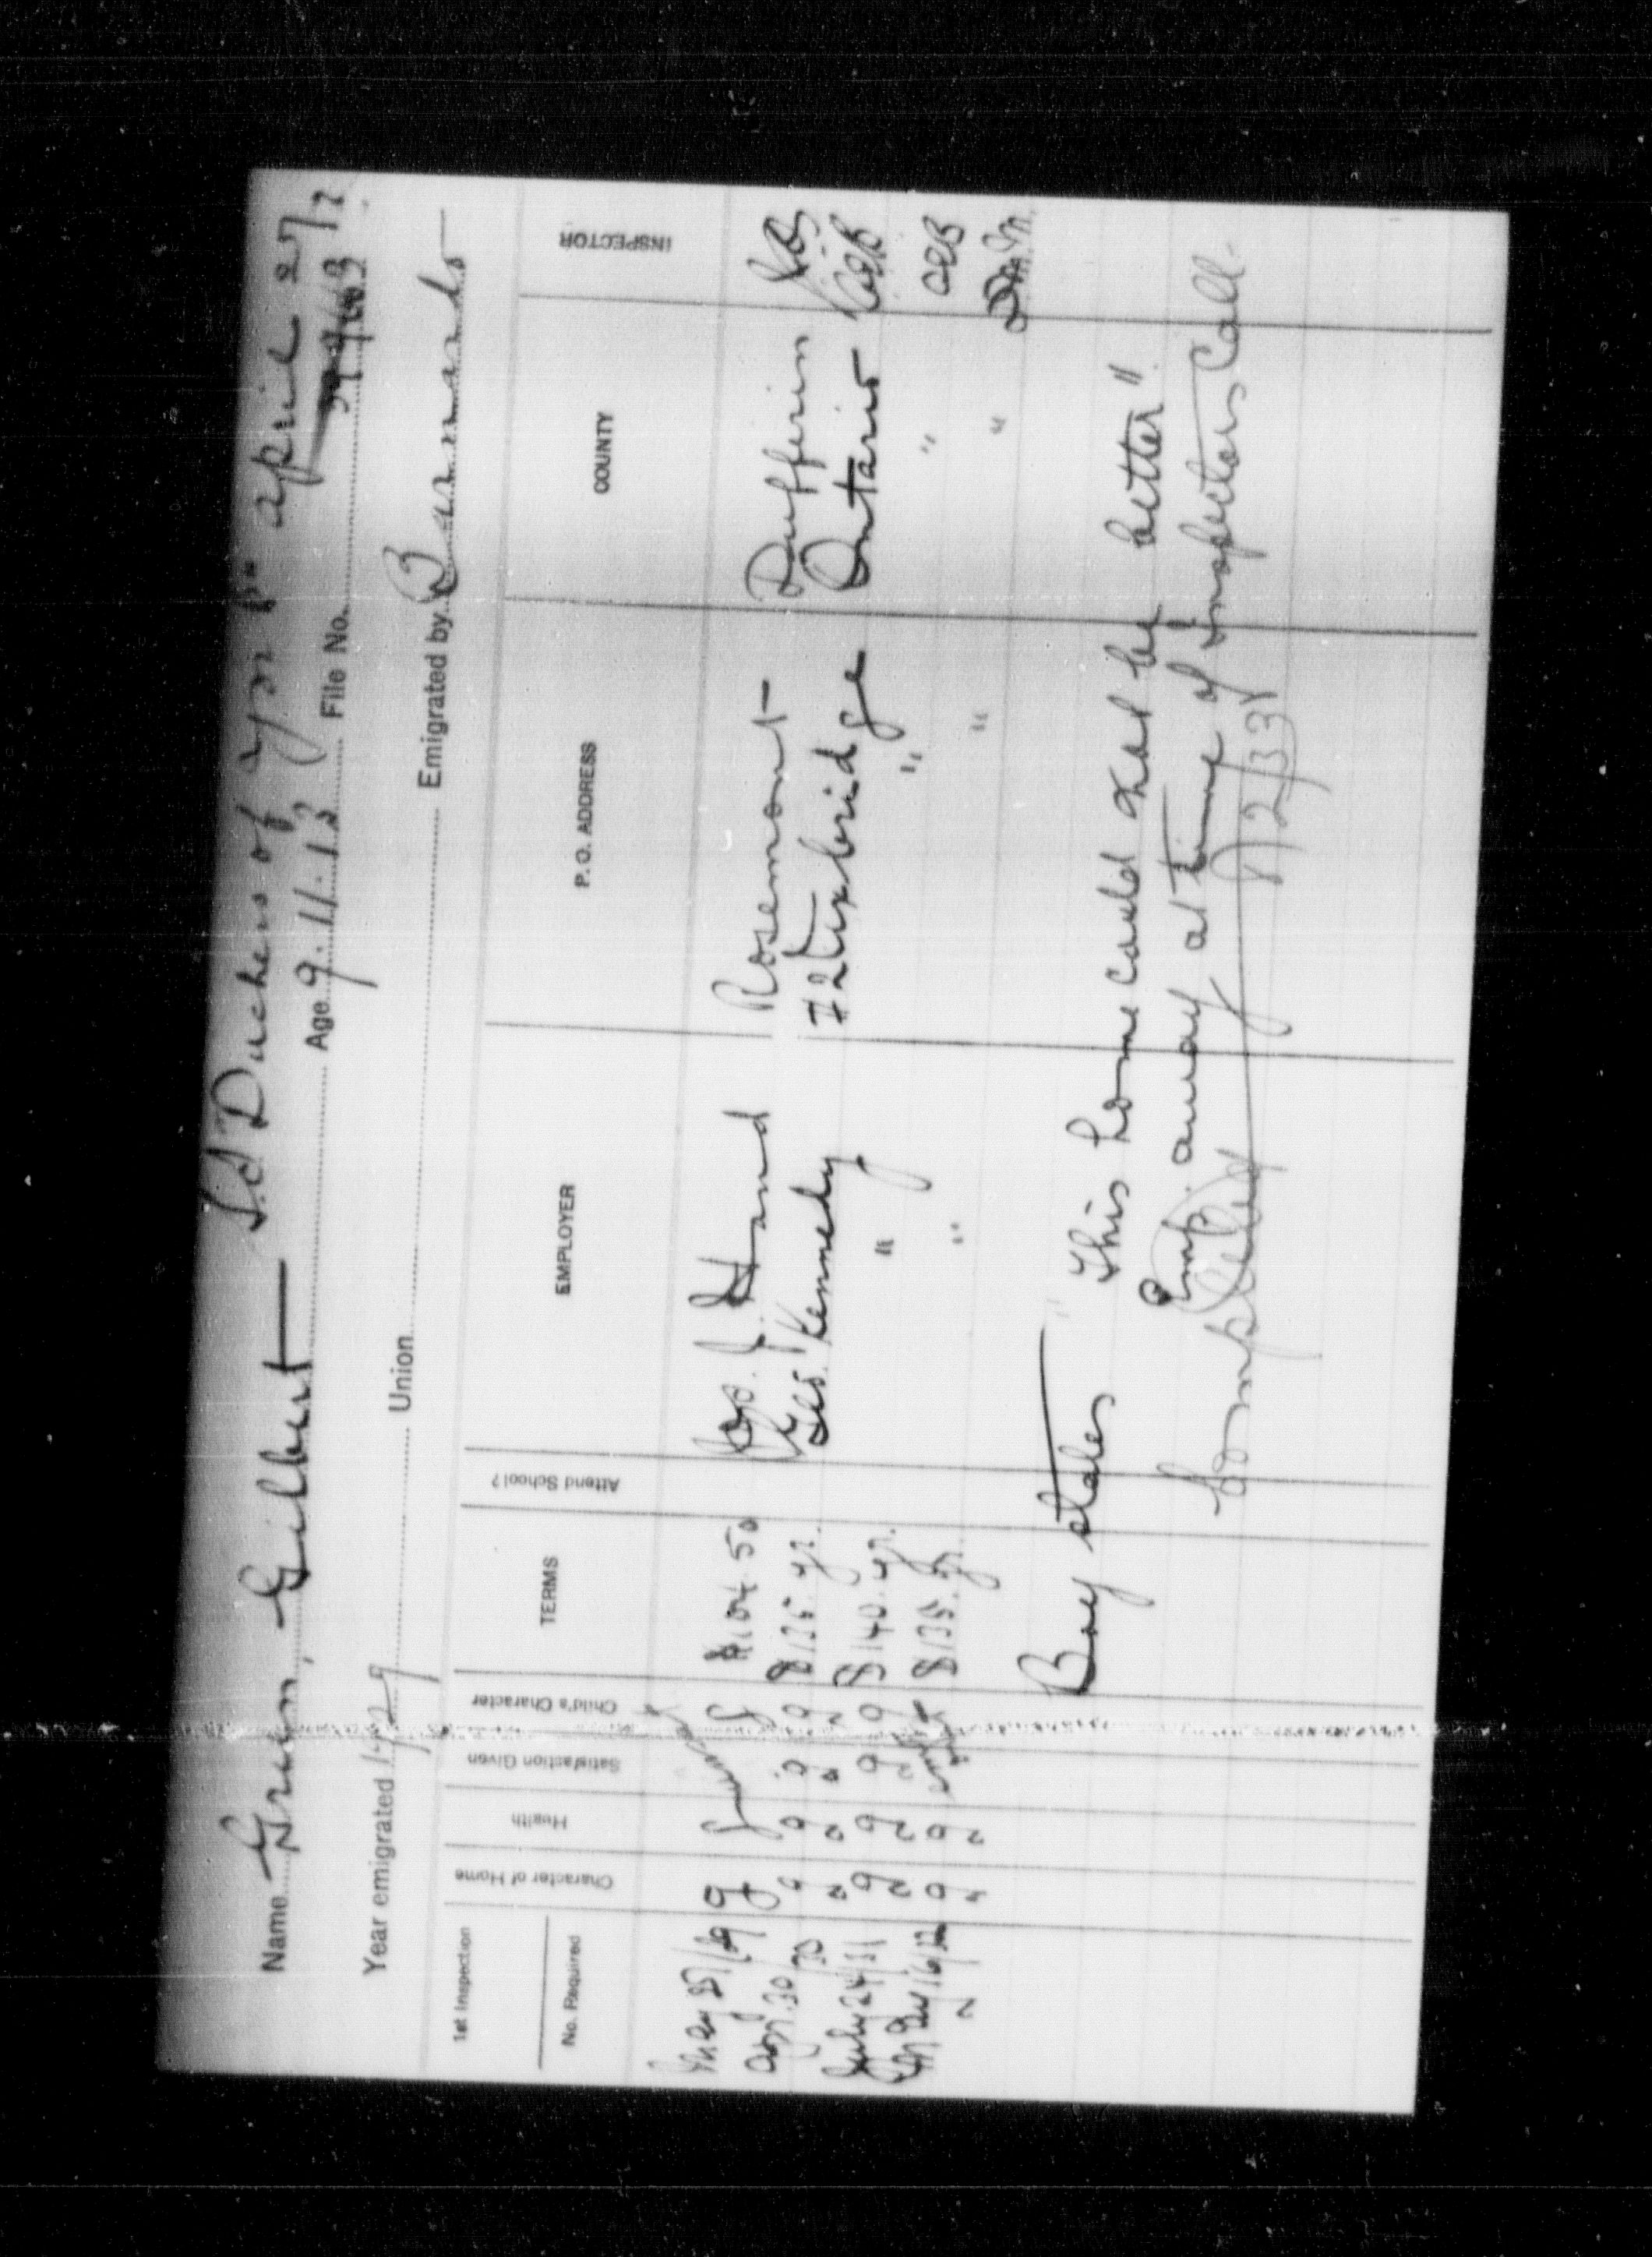 Name Green, Gilbert S.S. Duchess of April 27/
Age 9.11.13 File No.
Year emigrated 1929 Union Emigrated by Barnardo
1st Inspection
No. Required
Character of Home
Health
Satisfaction Given
Child's Character
TERMS
Attend School?
EMPLOYER
P. O. ADDRESS
COUNTY
INSPECTOR
May 25/29 g $104.50 J. Hand Rosemont Dufferin
Apr 30/30 g g g g $125 yr. Geo. Kennedy #2 Uxbridge Ontario CEB
July 24/31 g g g g $140 yr. " " " CEB
May 16/32 g g $135 yr. " " "
Boy states "This home could not be better"
Emp. away at time of Inspectors Call.
Completed